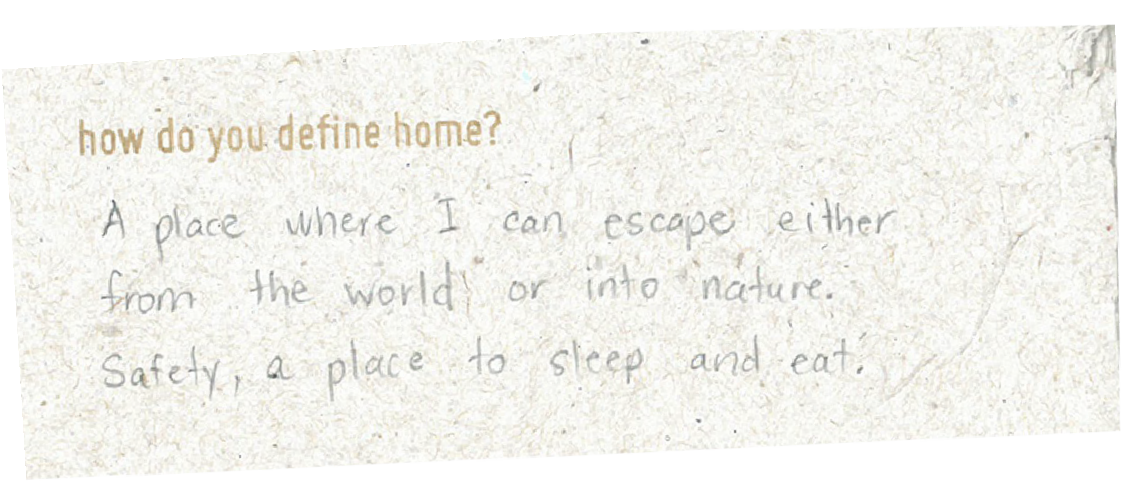 how do you define home?
A place where I can escape either
from the world or into nature.
Safety, a place to sleep and eat.